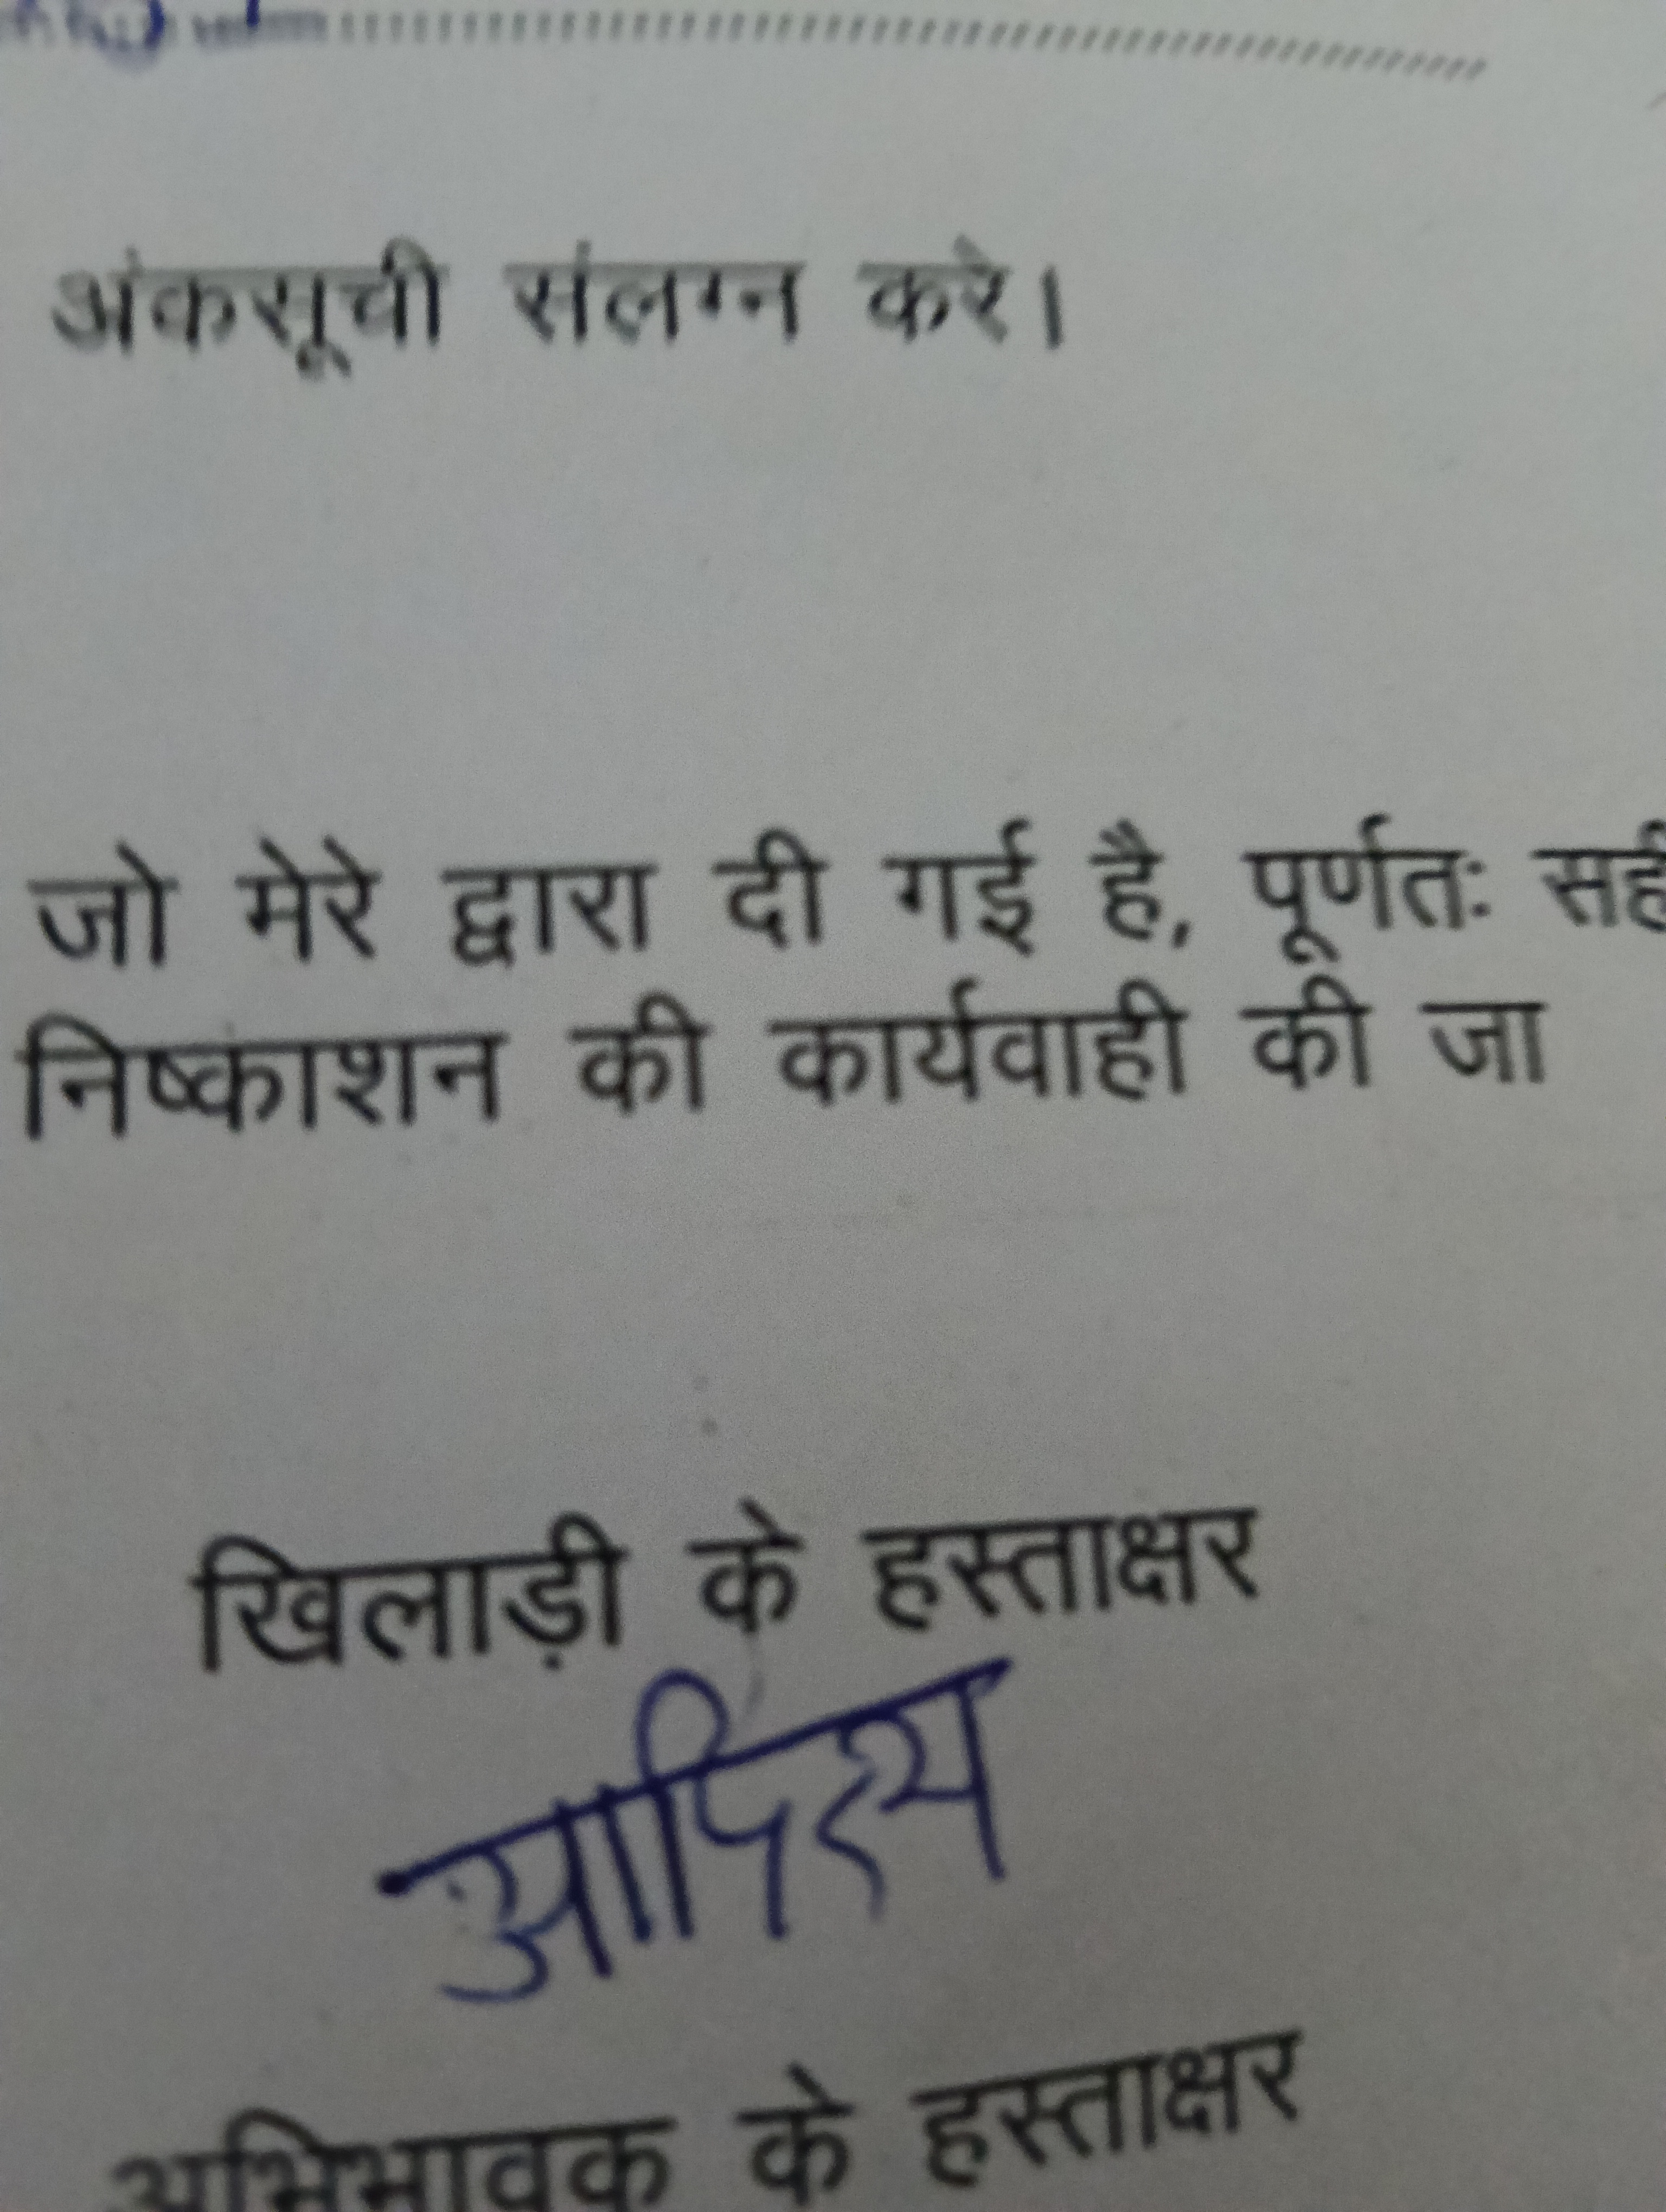 अंकसूची संलग्न करे।
जो मेरे द्वारा दी गई है, पूर्णतः सही
निष्काशन की कार्यवाही की जा
खिलाड़ी के हस्ताक्षर
आदित्य
अभिभावक के हस्ताक्षर